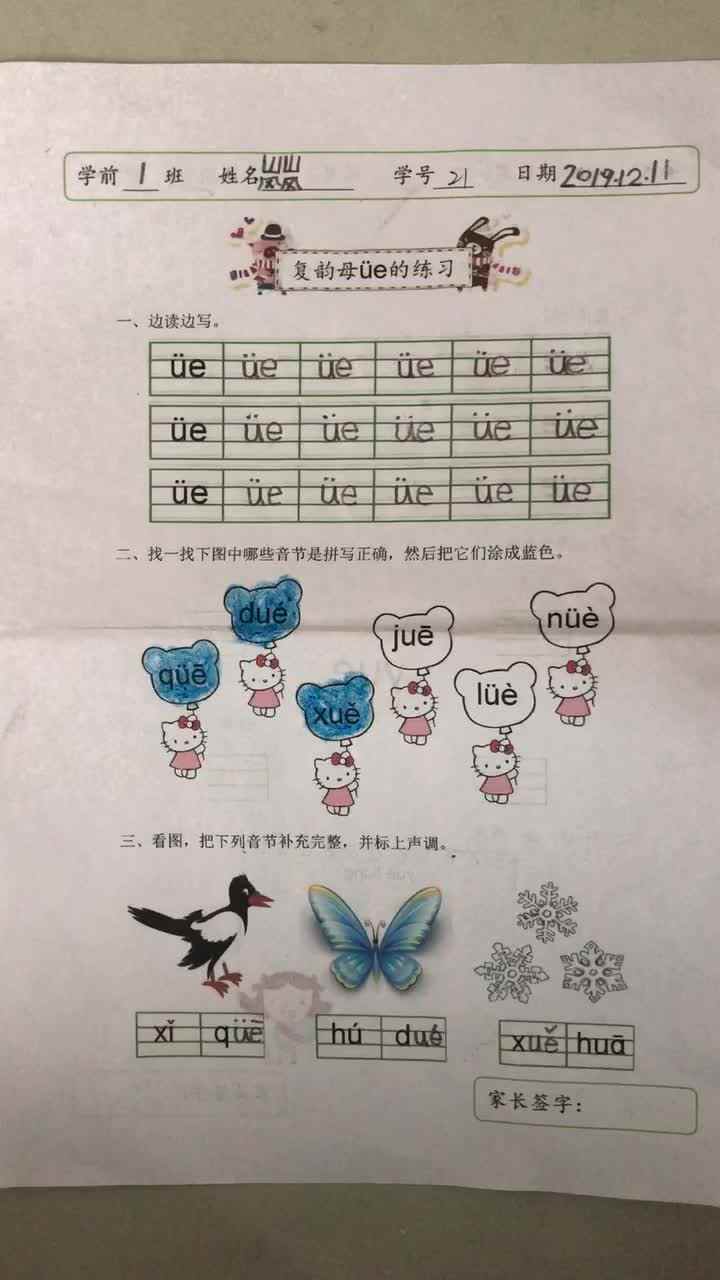 学前 1 班 姓名 学号 21 日期 2019.12.11
复韵母üe的练习
一、边读边写。
üe üe üe üe üe üe
üe üe üe üe üe üe
üe üe üe üe üe üe
二、找一找下图中哪些音节是拼写正确，然后把它们涂成蓝色。
qüē dué xuě juē lüè nüè
三、看图，把下列音节补充完整，并标上声调。
xǐ qüē hú dué xuě huā
家长签字：